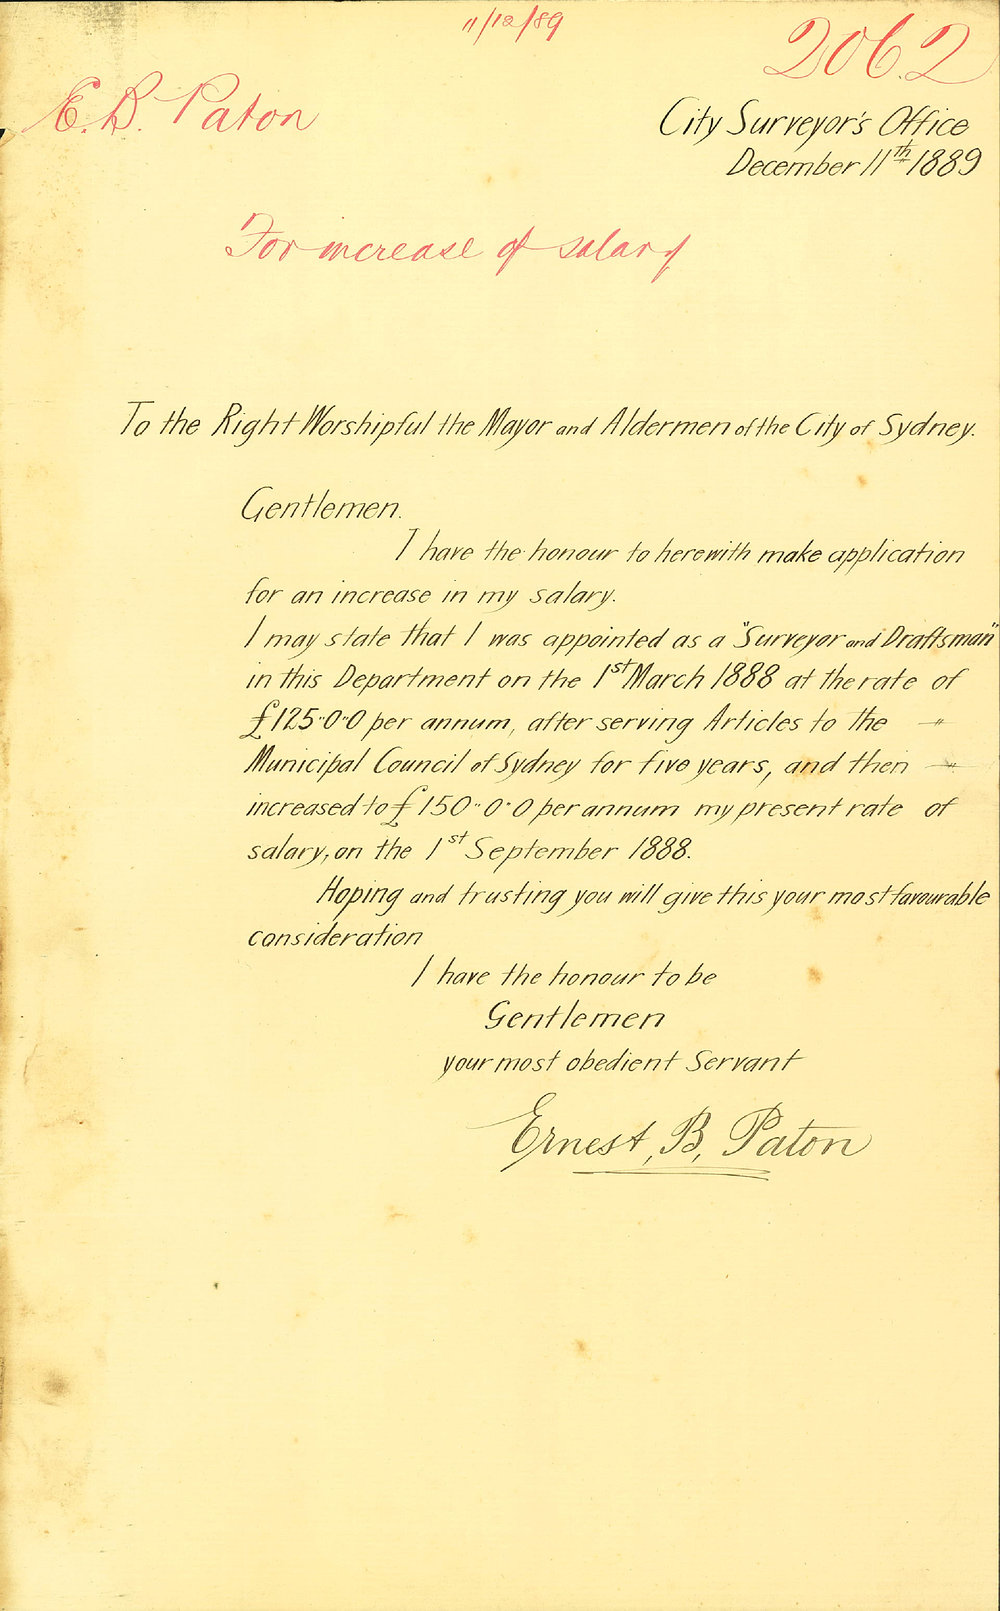 11/12/89
2062
E. B. Paton
City Surveyor's Office
December 11th 1889
For increase of salary
To the Right Worshipful the Mayor and Aldermen of the City of Sydney.
Gentlemen.
I have the honour to herewith make application
for an increase in my salary.
I may state that I was appointed as a "Surveyor and Draftsman"
in this Department on the 1st March 1888 at the rate of
£125"0"0 per annum, after serving Articles to the
Municipal Council of Sydney for five years, and then
increased to £150"0"0 per annum my present rate of
salary, on the 1st September 1888.
Hoping and trusting you will give this your most favourable
consideration
I have the honour to be
Gentlemen
your most obedient Servant
Ernest, B, Paton